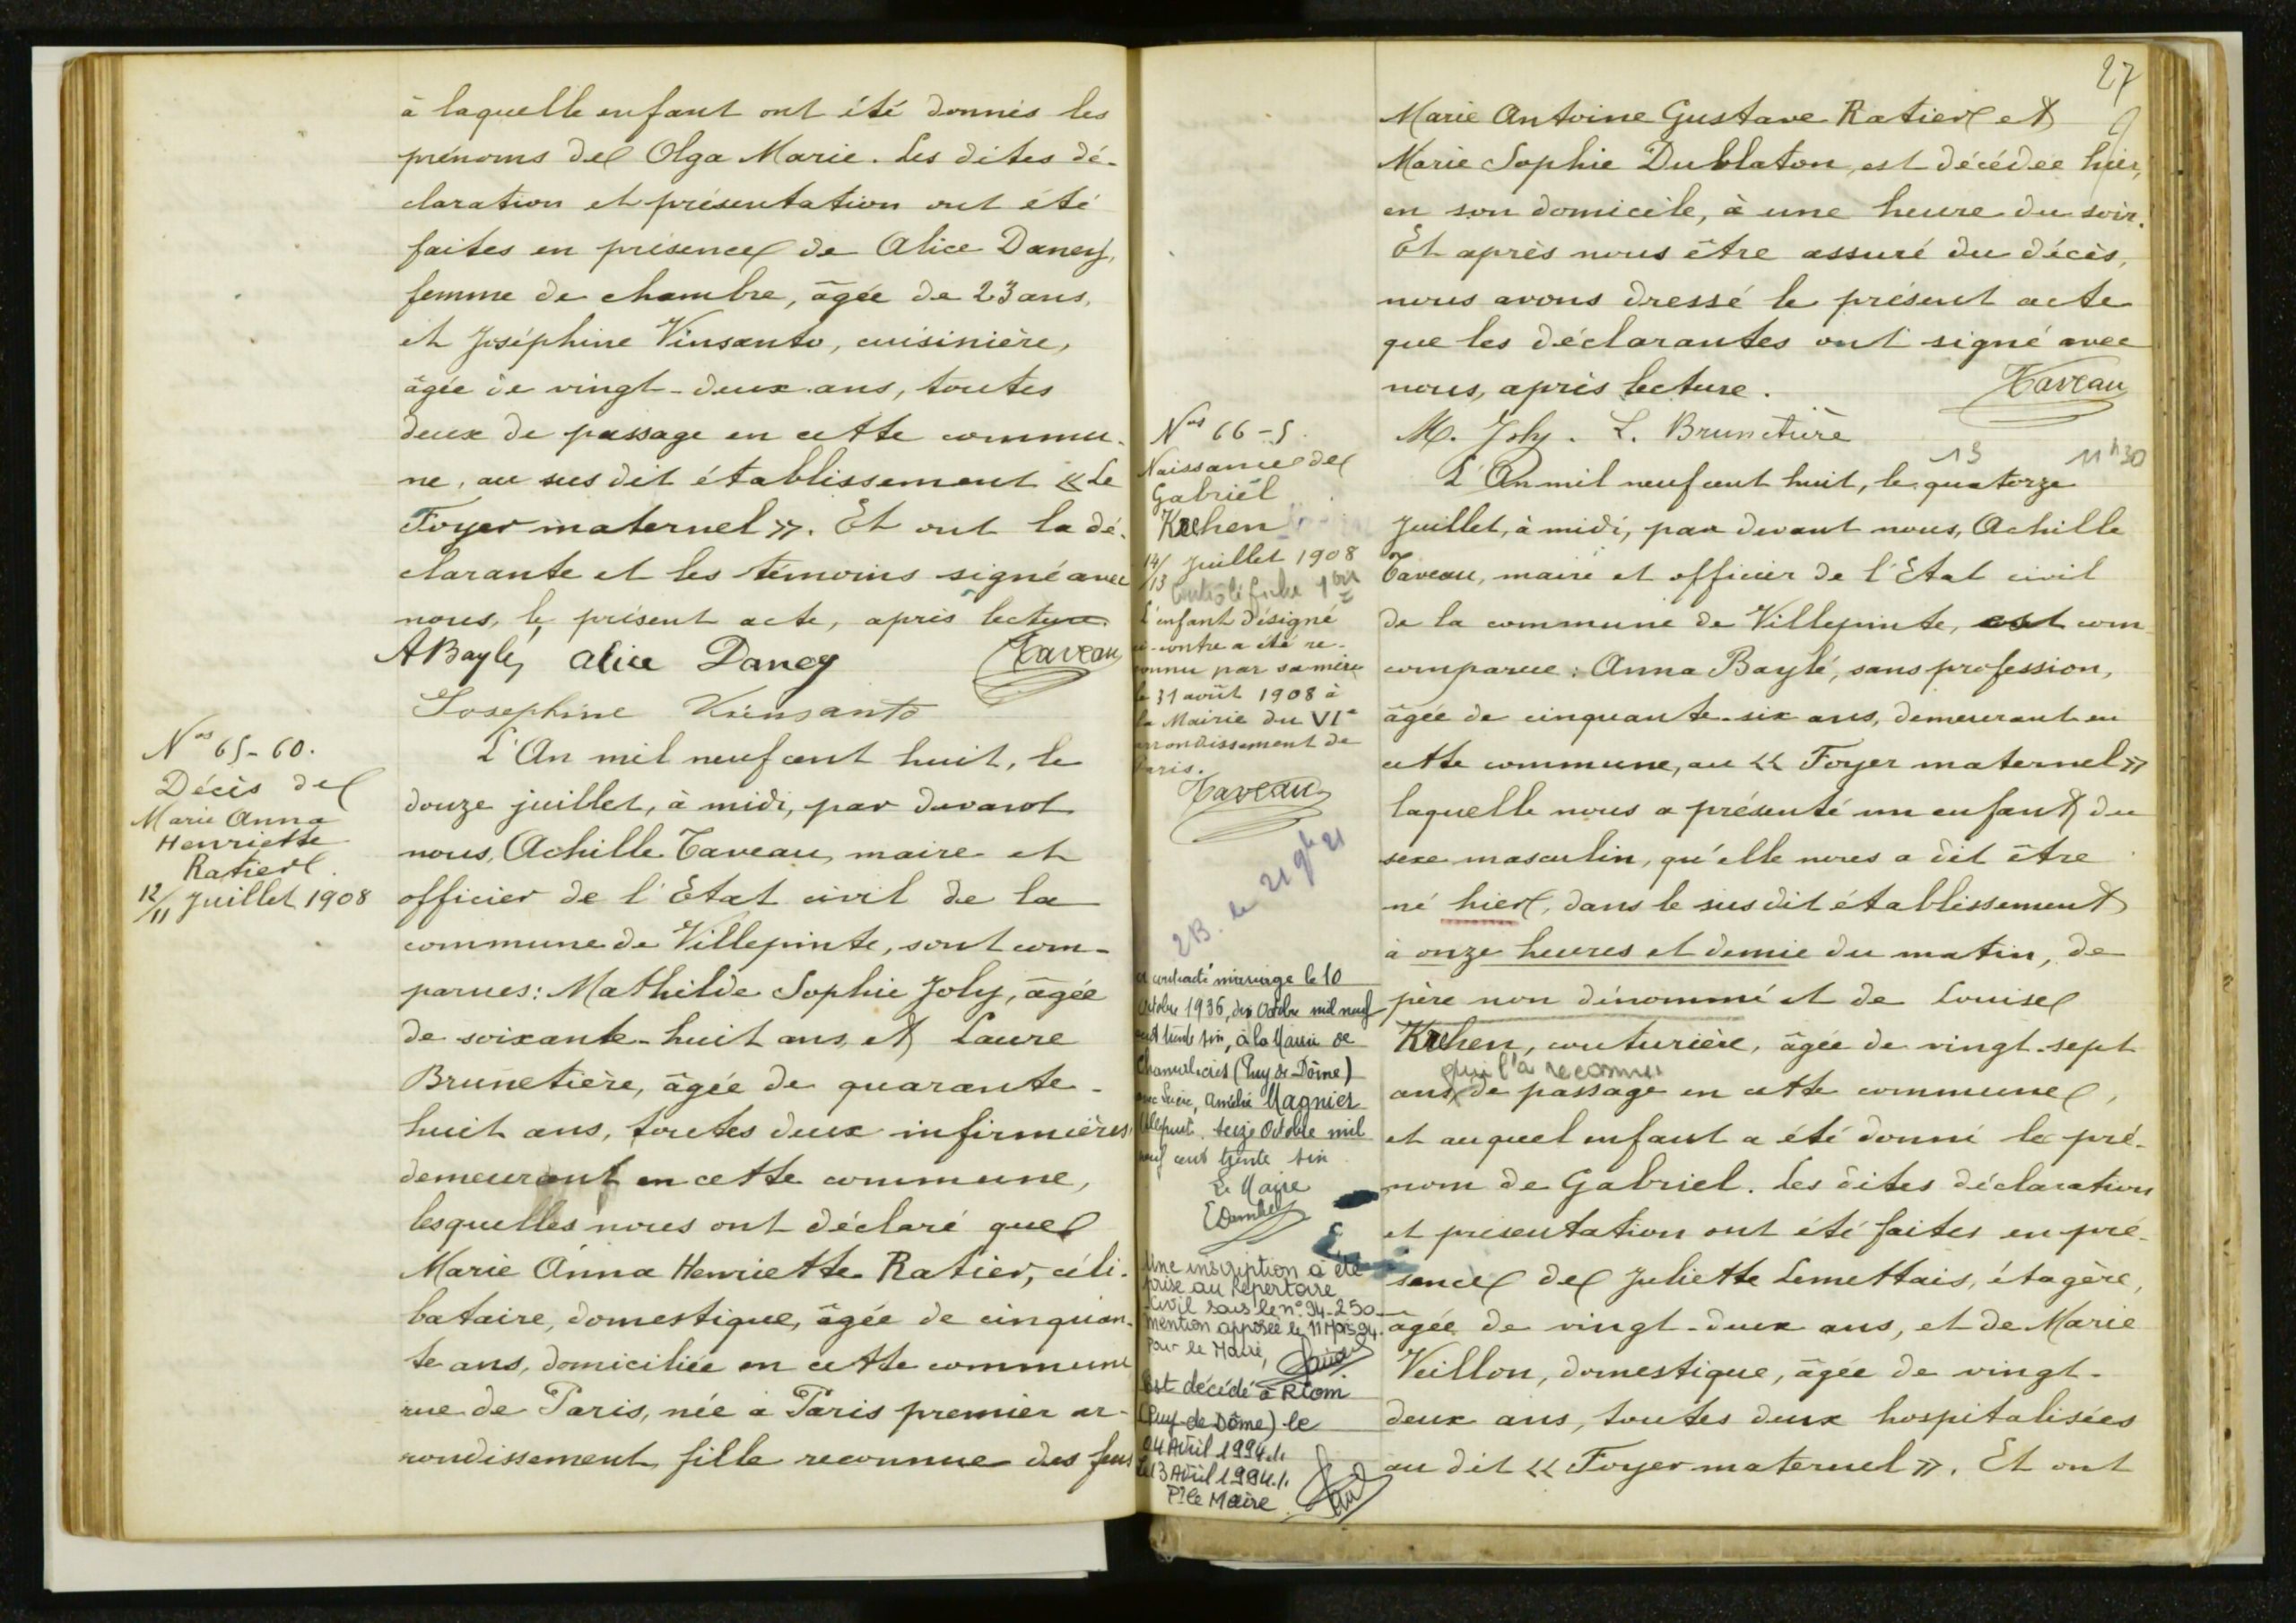 à laquelle enfant ont été donnés les
prénoms de Olga Marie. Les dites dé-
claration et présentation ont été
faites en présence de Alice Daney,
femme de chambre, âgée de 23 ans,
et Joséphine Vinsanto, cuisinière,
âgée de vingt-deux ans, toutes
deux de passage en cette commu-
ne, au sus dit établissement « Le
Foyer maternel ». Et ont la dé-
clarante et les témoins signé avec
nous, le présent acte, après lecture.
ABaylé, alice Daney Taveau
Josephine Vinsanto
Nos 65-60.
Décès de
Marie Anna
Henriette
Ratier.
12/11 Juillet 1908
L'An mil neuf cent huit, le
douze juillet, à midi, par devant
nous, Achille Taveau, maire et
officier de l'Etat civil de la
commune de Villepinte, sont com-
parues: Mathilde Sophie Joly, âgée
de soixante-huit ans, et Laure
Brunetière, âgée de quarante-
huit ans, toutes deux infirmières
demeurant en cette commune,
lesquelles nous ont déclaré que
Marie Anna Henriette Ratier, céli-
bataire, domestique, âgée de cinquan-
te ans, domiciliée en cette commune
rue de Paris, née à Paris premier ar-
rondissement, fille reconnue des feus
27
Marie Antoine Gustave Ratier et
Marie Sophie Dublaton, est décédée hier,
en son domicile, à une heure du soir.
Et après nous être assuré du décès,
nous avons dressé le présent acte
que les déclarantes ont signé avec
nous, après lecture. Taveau
M. Joly. L. Brunetière
Nos 66-5.
Naissance de
Gabriel
Krehen
14/13 Juillet 1908
L'enfant désigné
ci-contre a été re-
connu par sa mère
le 31 août 1908 à
la Mairie du VIe
arrondissement de
Paris.
Taveau
2B. le 21 9bre 21
a contracté mariage le 10
Octobre 1936, dix Octobre mil neuf
cent trente six, à la Mairie de
Chamalières (Puy de Dôme)
avec Lucie, Amélie Magnier
Villepinte. seize Octobre mil
neuf cent trente six
Le Maire
Une inscription a été
prise au Répertoire
Civil sous le n° 94-250
mention apposée le 11 Mars 94.
Pour le Maire,
Est décédé à Riom
(Puy-de Dôme) le
04 Avril 1994./.
Le 13 Avril 1994./.
P/le Maire
13 11h30
L'An mil neuf cent huit, le quatorze
Juillet, à midi, par devant nous, Achille
Taveau, maire et officier de l'Etat civil
de la commune de Villepinte, est com
comparue: Anna Baylé, sans profession,
âgée de cinquante-six ans, demeurant en
cette commune, au « Foyer maternel »
laquelle nous a présenté un enfant du
sexe masculin, qu'elle nous a dit être
né hier, dans le susdit établissement
à onze heures et demie du matin, de
père non dénommé et de Louise
Krehen, couturière, âgée de vingt-sept
qui l'a reconnu
ans, de passage en cette commune,
et auquel enfant a été donné le pré-
nom de Gabriel. Les dites déclaration
et présentation ont été faites en pré-
sence de Juliette Lemettais, étagère,
âgée de vingt-deux ans, et de Marie
Veillon, domestique, âgée de vingt-
deux ans, toutes deux hospitalisées
au dit « Foyer maternel ». Et ont